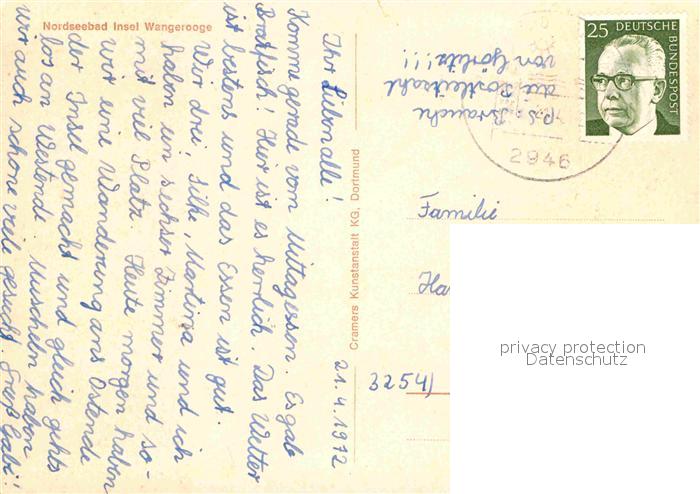 Nordseebad Insel Wangerooge
21.4.1972
Ihr Lieben alle!
Komme gerade vom Mittagessen. Es gab
Bratfisch! Hier ist es herrlich. Das Wetter
ist bestens und das Essen ist gut.
Wir drei, Silke, Martina und ich
haben ein sechser Zimmer und so-
mit viel Platz. Heute morgen haben
wir eine Wanderung ans Ostende
der Insel gemacht und gleich gehts
los an Westende. Muscheln haben
wir auch schon viele gesucht. Gruß Gabi!!
P.S. Brauche
die Postleitzahl
von Görlitz!!!
Cramers Kunstanstalt KG, Dortmund
25 DEUTSCHE
BUNDESPOST
2946
Familie
Ha
3254)
privacy protection
Datenschutz